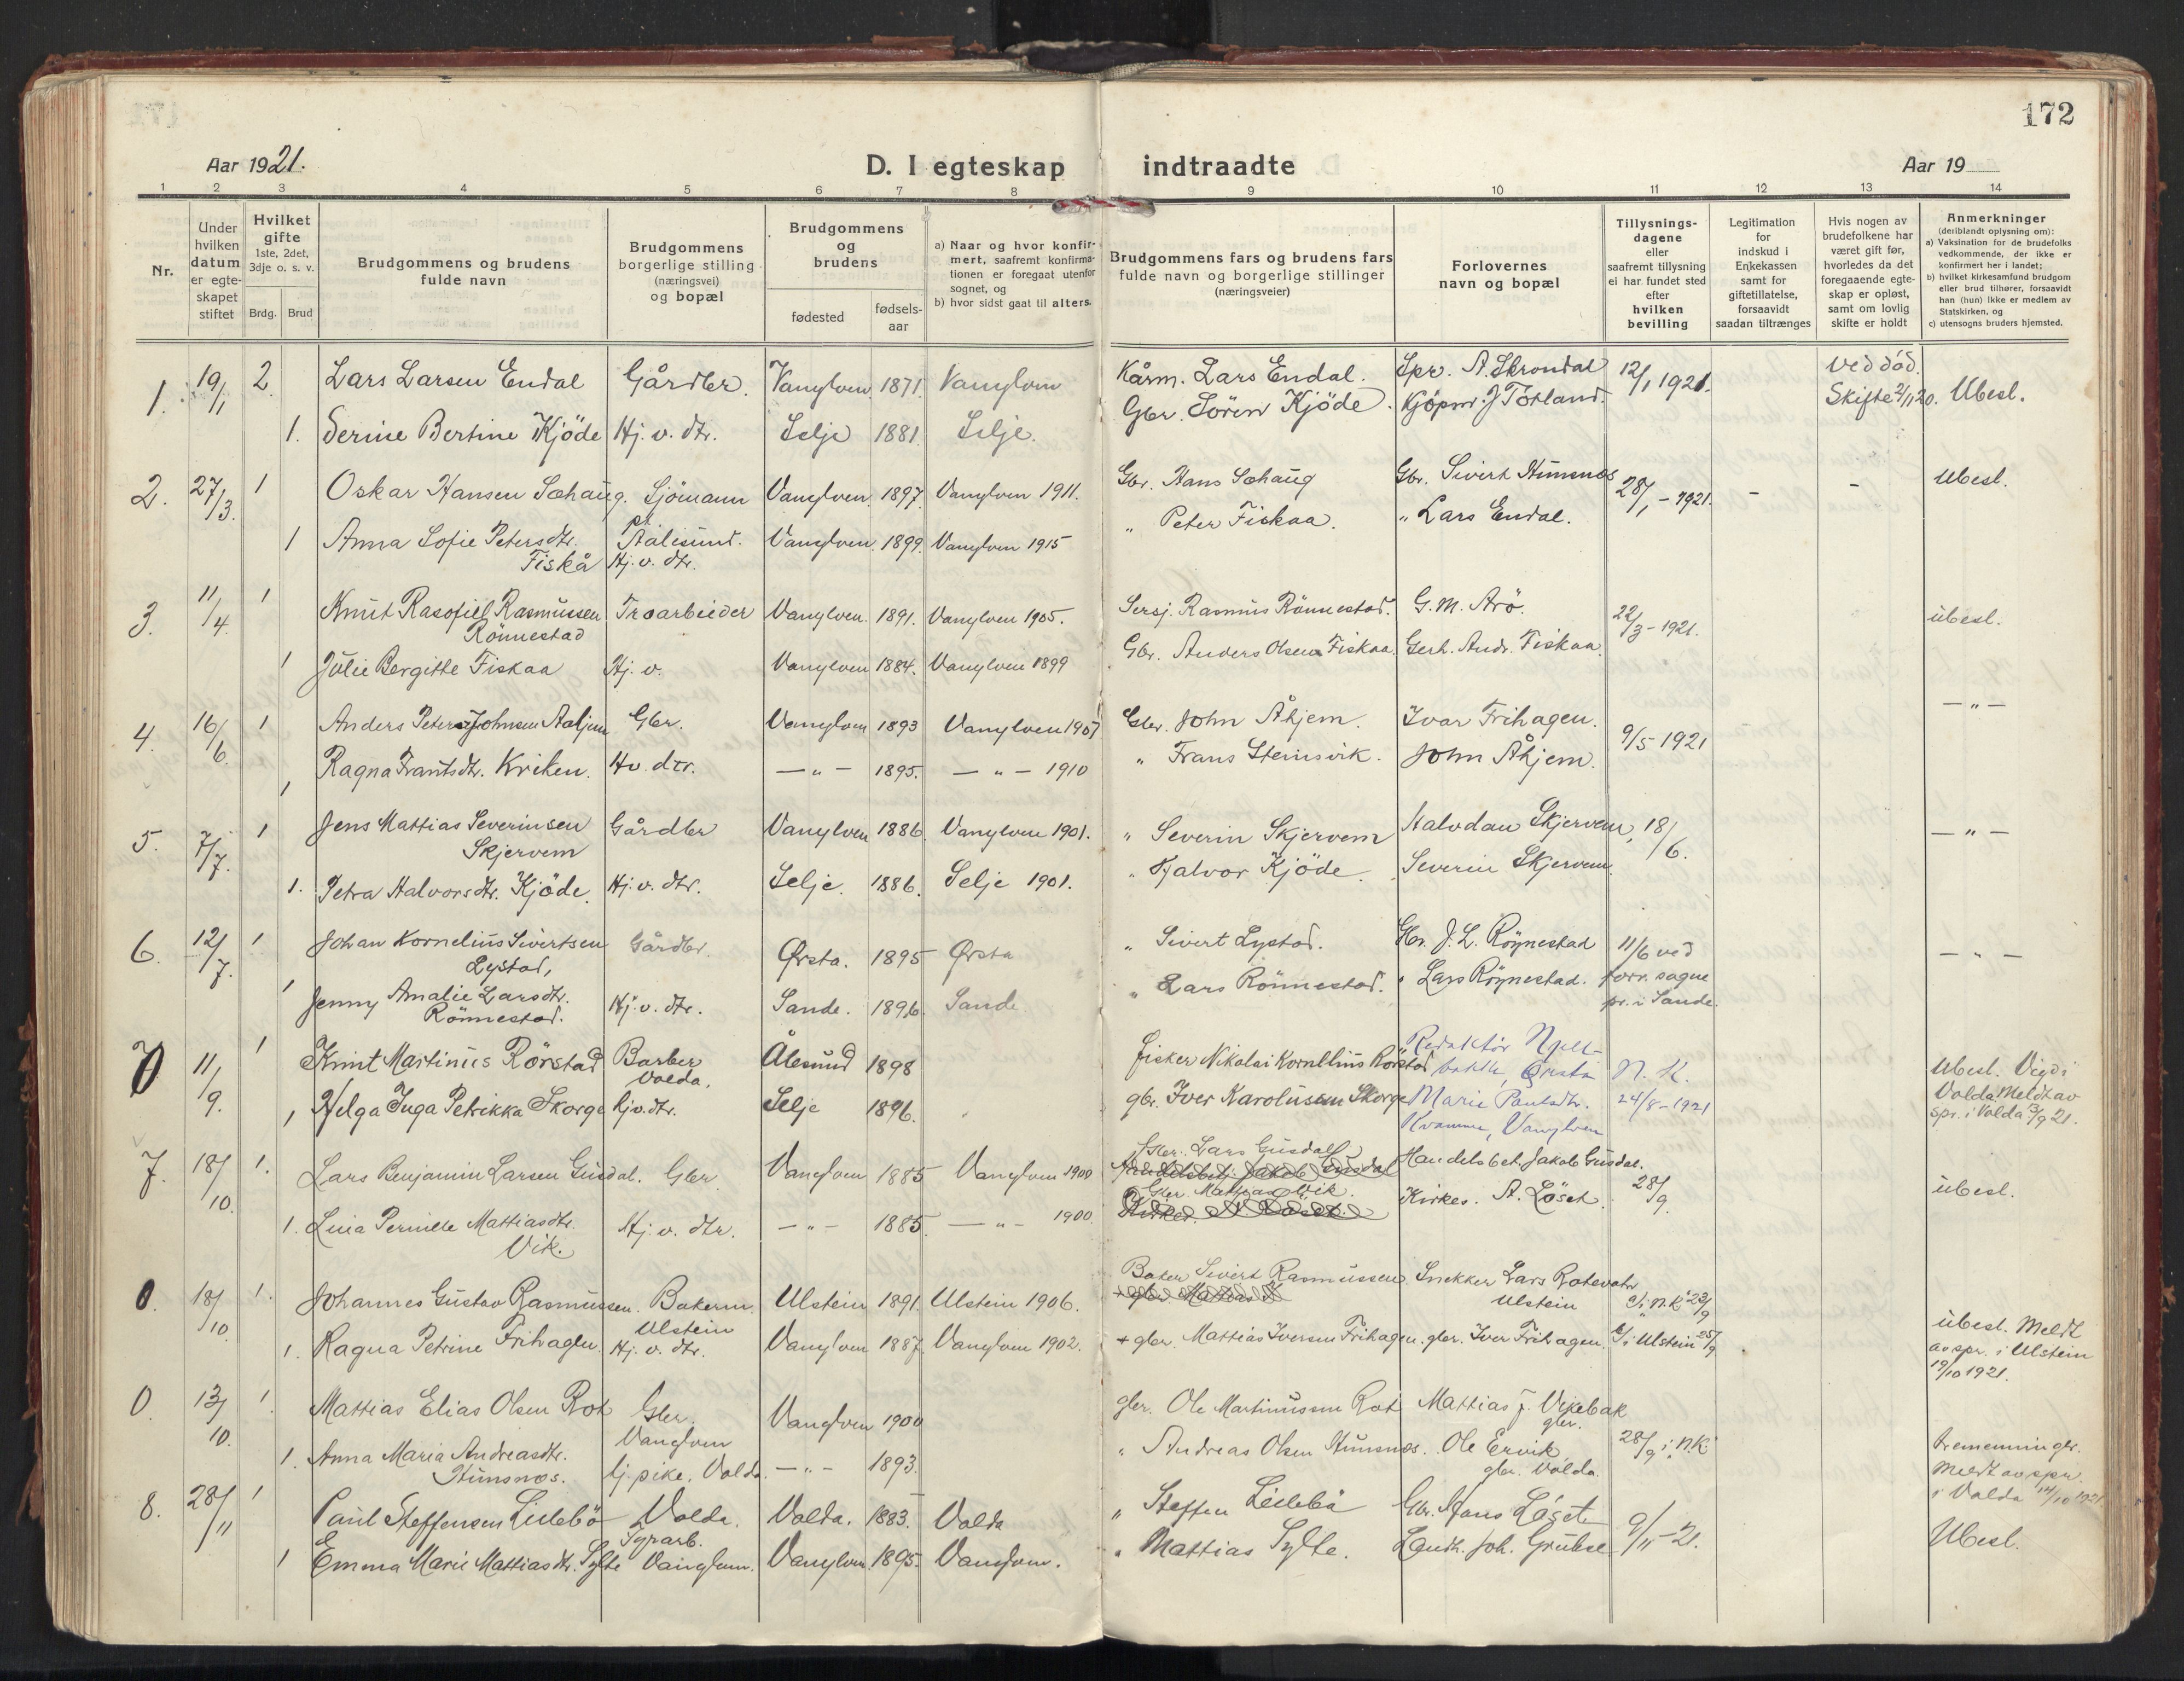 172
Aar 1921.
D. I egteskap indtraadte
Aar 19
1 2 3 4 5 6 7 8 9 10 11 12 13 14
Nr.
Under hvilken datum er egte-skapet stiftet
Hvilket gifte 1ste, 2det, 3dje o. s. v.
Brdg. Brud
Brudgommens og brudens fulde navn
Brudgommens borgerlige stilling (næringsvei) og bopæl
Brudgommens og brudens
fødested
fødsels-aar
a) Naar og hvor konfir-mert, saafremt konfirma-tionen er foregaat utenfor sognet, og
b) hvor sidst gaat til alters.
Brudgommens fars og brudens fars fulde navn og borgerlige stillinger (næringsveier)
Forlovernes navn og bopæl
Tillysnings-dagene eller saafremt tillysning ei har fundet sted efter hvilken bevilling
Legitimation for indskud i Enkekassen samt for giftetillatelse, forsaavidt saadan tiltrænges
Hvis nogen av brudefolkene har været gift før, hvorledes da det foregaaende egte-skap er opløst, samt om lovlig skifte er holdt
Anmerkninger (deriblandt oplysning om):
a) Vaksination for de brudefolks vedkommende, der ikke er konfirmert her i landet;
b) hvilket kirkesamfund brudgom eller brud tilhører, forsaavidt han (hun) ikke er medlem av Statskirken, og
c) utensogns bruders hjemsted.
1. 19/1 2 Lars Larsen Endal Gårdbr. Vanylven 1871. Vanylven Kårm. Lars Endal. Spr. A. Skrondal 12/1 1921. Ved død. Skifte 2/11 20. Ubesl.
1. Serine Bertine Kjöde Hj. v. dtr. Selje 1881. Selje. Gbr. Sören Kjöde. Kjöpm. J Torland.
2. 27/3. 1 Oskar Hansen Sæhaug. Sjömann Vanylven 1897. Vanylven 1911. Gbr. Hans Sæhaug Gbr. Sivert Hunsnes 28/1 - 1921. - - Ubesl.
pt. Aalesund.
1 Anna Sofie Petersdtr. Fiskå Hj. v. dtr. Vanylven 1899. Vanylven 1915 " Peter Fiskaa. " Lars Endal.
3. 11/4. 1 Knut Rasofiel Rasmussen Rönnestad Træarbeider Vanylven. 1891. Vanylven 1905. Sersj. Rasmus Rönnestad. G. M. Arö. 22/3 - 1921. ubesl.
1 Julie Bergitte Fiskaa Hj. v. Vanylven 1884. Vanylven 1899 Gbr. Anders Olsen Fiskaa. Gerh. Andr. Fiskaa.
4. 16/6. 1 Anders Peter Johnsen Aahjem Gbr. Vanylven 1893 Vanylven 1907 Gbr. John Åhjem. Ivar Frihagen. 9/5 1921 - " -
1 Ragna Frantsdtr. Kriken. Hv. dtr. - " - 1895. - " - 1910 " Frans Steinsvik. John Åhjem.
5. 7/7. 1 Jens Mattias Severinsen Skjervem Gårdbr Vanylven 1886. Vanylven 1901. " Severin Skjervem Halvdan Skjervem, 18/6. - " -
1. Petra Halvorsdtr. Kjöde. Hj. v. dtr. Selje. 1886. Selje 1901. " Halvor Kjöde. Severin Skjervem.
6. 12/7. 1 Johan Kornelius Sivertsen Lystad, Gårdbr. Ørsta. 1895 Ørsta " Sivert Lystad. Gbr. J. L. Röynestad 11/6 ved forr. sogne pr. i Sande - " -
1 Jenny Amalie Larsdtr. Rönnestad. Hj. v. dtr. Sande. 1896. Sande " Lars Rönnestad. " Lars Röynestad.
0 11/9. 1 Knut Martinus Rörstad Barber Volda. Ålesund 1898 fisker Nikolai Kornelius Rörstad Redaktör Ørsta N. K. 24/8 - 1921 Ubesl. Vigd i Volda. Meldt av spr. i Volda 13/9 21.
1 Helga Inga Petrikka Skorge hjv. dtr. Selje 1896. gbr. Iver Karolussen Skorge Marie Kvamme, Vanylven
7. 18/10. 1. Lars Benjamin Larsen Gusdal. Gbr. Vanylven 1885 Vanylven 1900 Gbr. Lars Gusdal Handelsbet. Jakob Gusdal. 28/9. ubesl.
1. Lina Pernille Mattiasdtr. Vik. Hj. v. dtr. - " - 1885 - " - 1900 Gbr. Mattias Vik. Kirkes. A. Löset.
0. 18/10. 1. Johannes Gustav Rasmussen. Bakerm. Ulstein Ulstein 1891 Ulstein 1906. Baker Sivert Rasmussen Snekker Lars Rotevatn Ulstein i N.K. 23/9
1. Ragna Petrine Frihagen. Hj. v. dtr. Vanylven 1887. Vanylven 1902. + gbr. Mattias Iversen Frihagen. gbr. Iver Frihagen. i Ulstein 25/9 ubesl. Meldt av spr. i Ulstein 19/10 1921.
0. 13/10. 1. Mattias Elias Olsen Rot Gbr. Vanylven Vanylven 1900 gbr. Ole Martinussen Rot Mattias J. Vikebak gbr. 28/9 i N.K.
1. Anna Maria Andreasdtr. Hunsnes. tj. pike, Volda - " - 1893. " Andreas Olsen Hunsnes. Ole Ervik gbr. Volda. Meldt av spr. i Volda 14/10 1921.
8. 28/11 1 Paul Steffensen Lillebö Volda. Volda. 1883. Volda " Steffen Lillebö Gbr. Hans Löset 9/11 - 21. Ubesl.
1 Emma Marie Mattiasdtr. Sylte Syrarb. Vanylven. Vanylven. 1895. Vanylven. " Mattias Sylte. Landh. Joh. Grubse